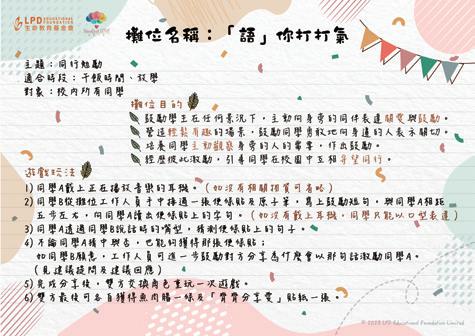 LPD EDUCATIONAL FOUNDATION
生命教育基金會
攤位名稱：「語」你打打氣
主題：同行勉勵
適合時段：午飯時間、放學
對象：校內所有同學
攤位目的
鼓勵學生在任何景況下，主動向身旁的同伴表達關愛與鼓勵。
營造輕鬆有趣的場景，鼓勵同學勇敢地向身邊的人表示關切。
培養同學主動觀察身旁的人的需要，作出鼓勵。
經歷彼此激勵，引導同學在校園中互相守望同行。
遊戲玩法
1) 同學A戴上正在播放音樂的耳機。（如沒有相關物資可省略）
2) 同學B從攤位工作人員手中接過一張便條貼及原子筆，寫上鼓勵短句，與同學A相距
五步左右，向同學A讀出便條貼上的字句。（如沒有戴上耳機，同學只能以口型表達）
3) 同學A透過同學B說話時的嘴型，猜測便條貼上的句子。
4) 不論同學A猜中與否，也能夠獲得那張便條貼；
如同學B願意，工作人員可進一步鼓勵對方分享為什麼會以那句話激勵同學A。
（見建議提問及建議回應）
5) 完成分享後，雙方交換角色重玩一次遊戲。
6) 雙方最後可各自獲得魚肉腸一條及「齊齊分享愛」貼紙一張。
© 2023 LPD Educational Foundation Limited